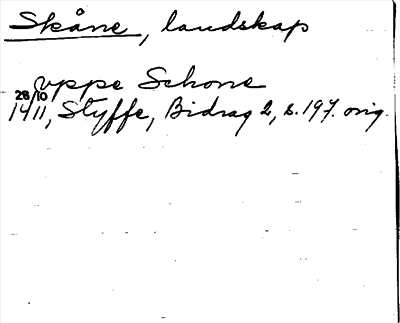 Skåne, landskap
vppe Schone
28/10 1411, Styffe, Bidrag 2, s. 197. orig.